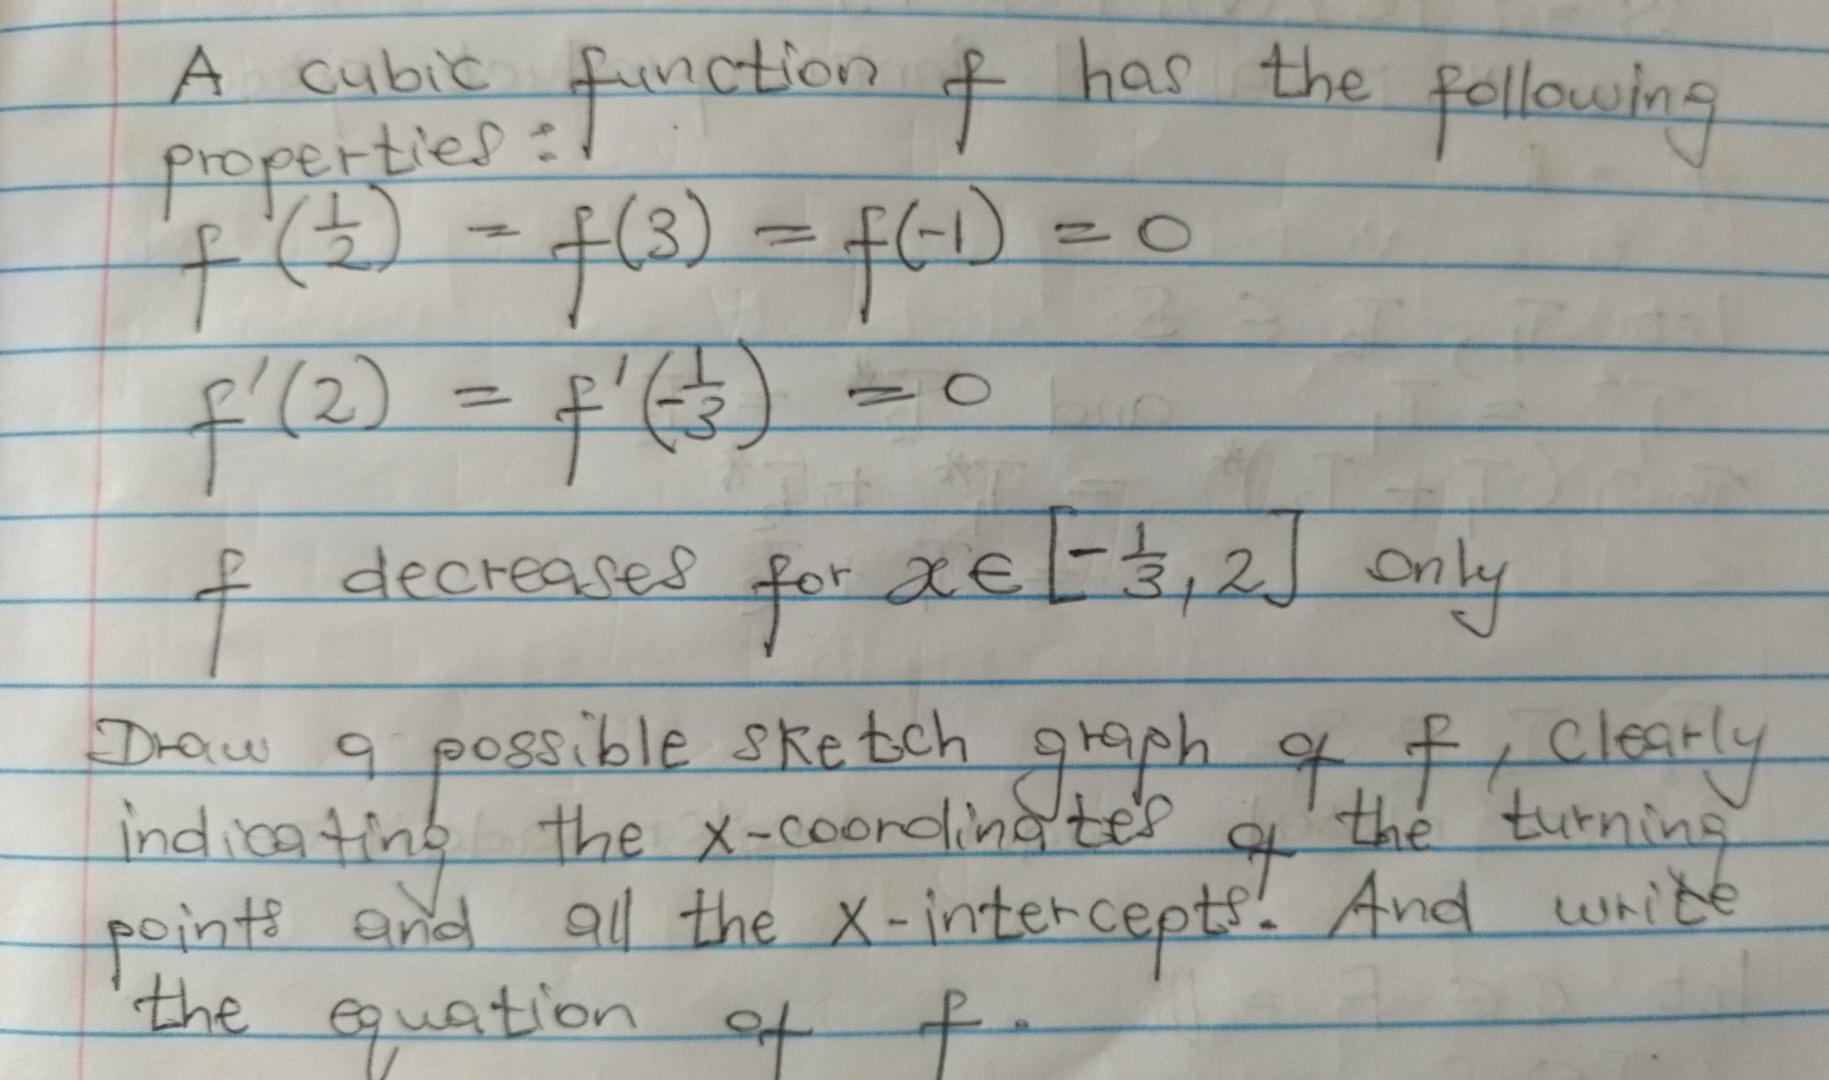 A cubic function f has the following
properties:
f(1/2) = f(3) = f(-1) = 0
f'(2) = f'(-1/3) = 0
f decreases for x ∈ [-1/3, 2] only
Draw a possible sketch graph of f, clearly
indicating the x-coordinates of the turning
points and all the x-intercepts. And write
the equation of f.